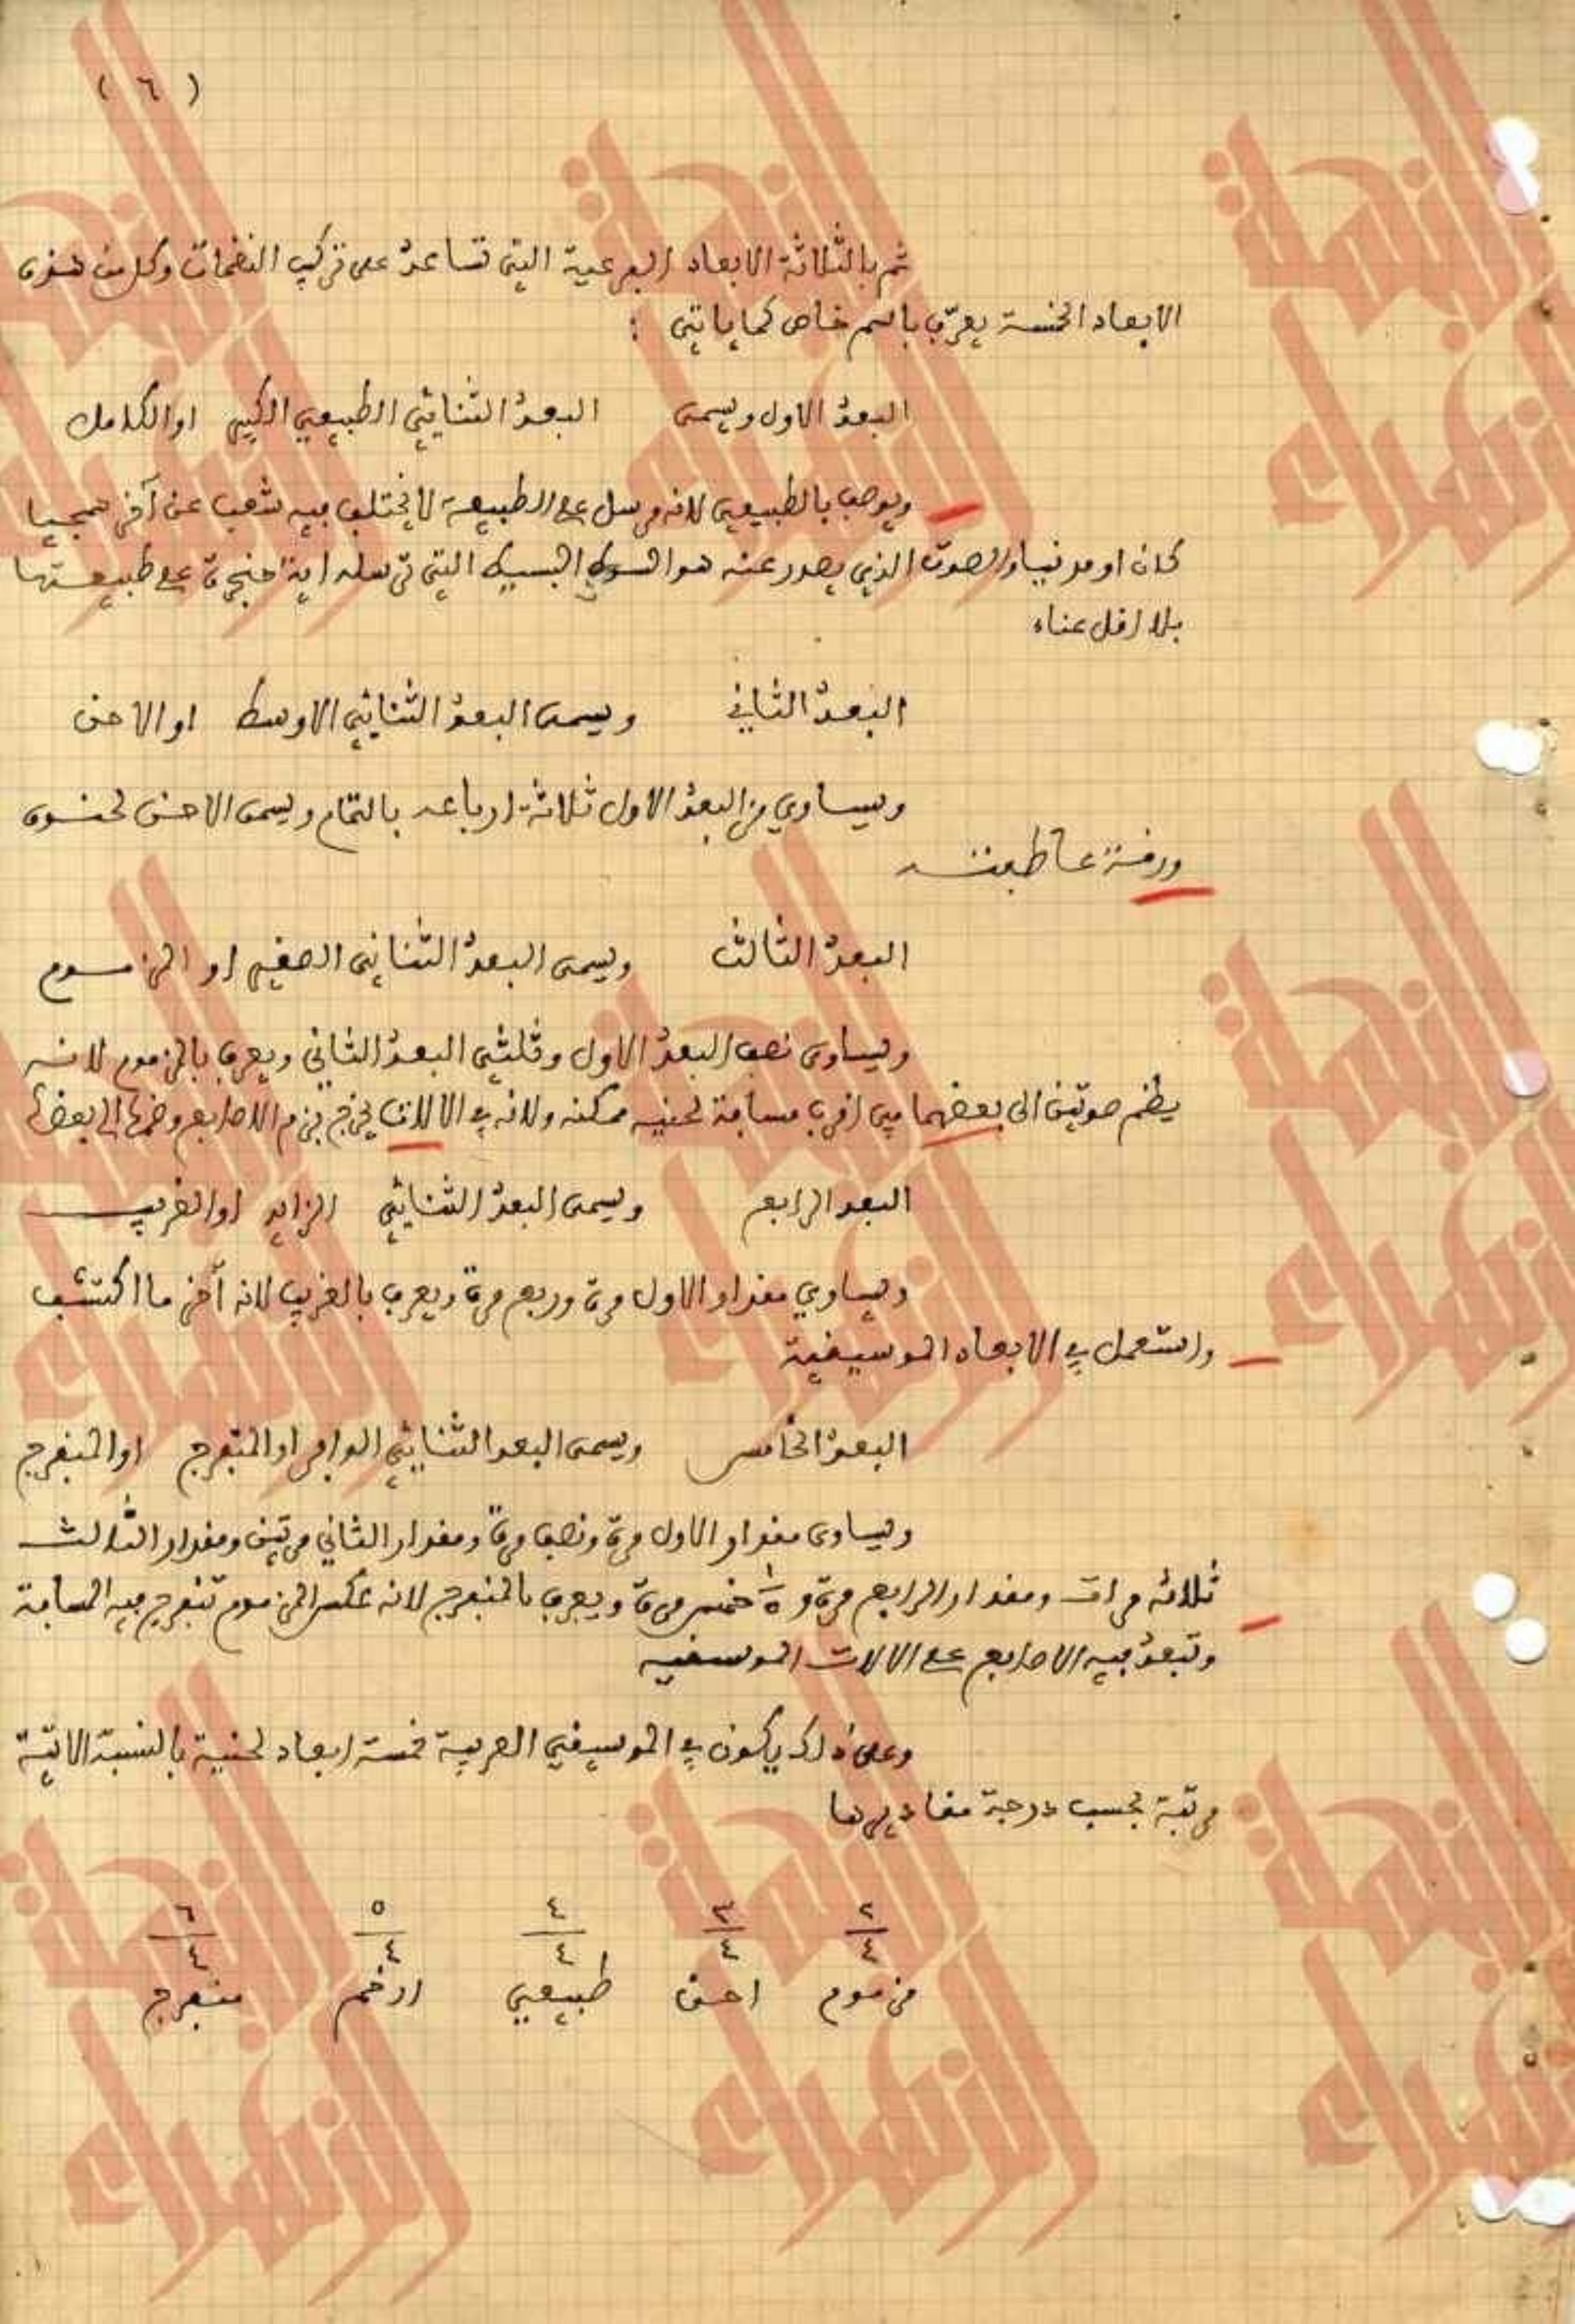 ( ٦ )
ثم بالثلاثة الابعاد الفرعية التي تساعد على تركيب النغمات وكل من هذه
الابعاد الخمسة يعرّف باسم خاص كما ياتي :
البعد الاول ويسمى البعد الثنائي الطبيعي الكبير او الكامل
ويوصف بالطبيعي لانه مرسل على الطبيعة لا يختلف فيه شعب عن آخر همجيا
كان او مدنيا والصوت الذي يصدر عنه هو الصوت البسيط التي ترسله اية حنجرة على طبيعتها
بلا اقل عناء
البعد الثاني ويسمى البعد الثنائي الاوسط او الاحن
ويساوي من البعد الاول ثلاثة ارباعه بالتمام ويسمى الاحن لحنوه
ورقة عاطفته
البعد الثالث ويسمى البعد الثنائي الصغير او المزموم
ويساوى نصف البعد الاول وثلثي البعد الثاني ويعرف بالمزموم لانه
يضم صوتين الى بعضهما في اقرب مسافة لحنيه ممكنه ولانه في الالات يخرج بزم الاصابع وضمها الى بعضها
البعد الرابع ويسمى البعد الثنائي الزايد او الغريب
ويساوي مقدار الاول مرة وربع مرة ويعرف بالغريب لانه آخر ما اكتشف
واستعمل في الابعاد الموسيقية
البعد الخامس ويسمى البعد الثنائي الوافر او المتفرج او المنفرج
ويساوى مقدار الاول مرة ونصف مرة ومقدار الثاني مرتين ومقدار الثالث
ثلاثة مرات ومقدار الرابع مرة و ١/٥ خمس مرة ويعرف بالمنفرج لانه عكس المزموم تنفرج فيه المسافة
وتبعد فيه الاصابع على الالات الموسقيه
وعلى ذلك يكون في الموسيقي العربية خمسة ابعاد لحنية بالنسبة الاتية
مرتبة بحسب درجة مقاديرها
٢/٤ ٣/٤ ٤/٤ ٥/٤ ٦/٤
مزموم احن طبيعي ارخم منفرج
النهضة
الزهراء